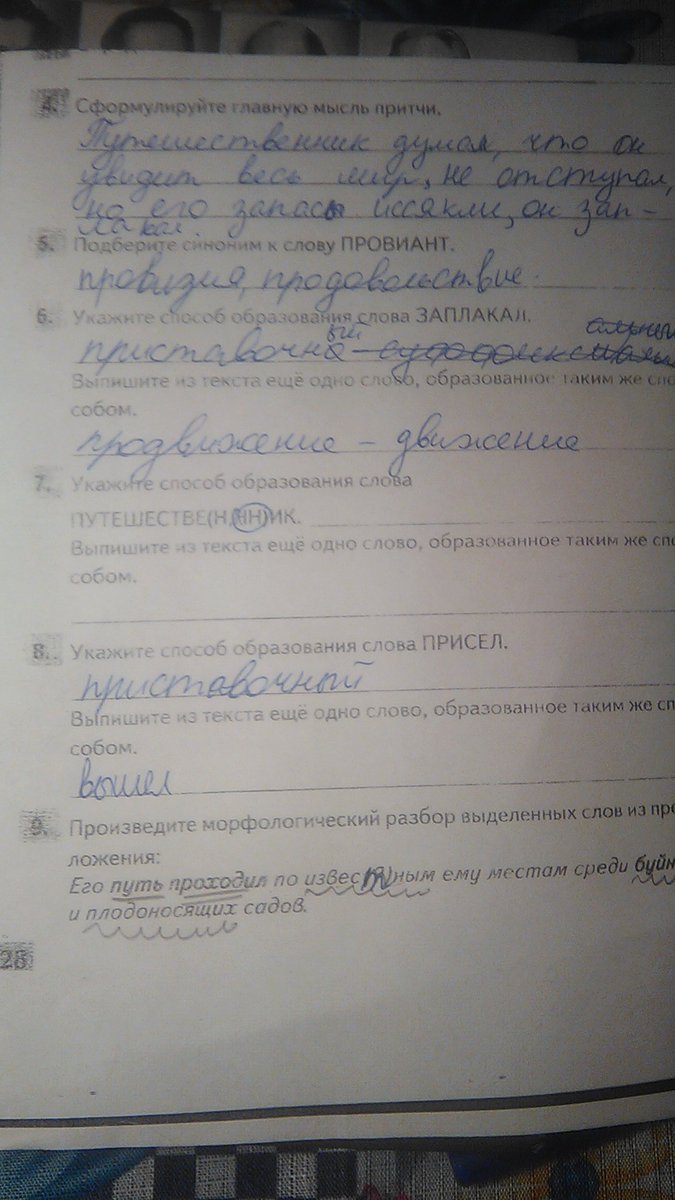 4. Сформулируйте главную мысль притчи.
Путешественник думал, что он
увидит весь мир, не отступал,
но его запасы иссякли, он зап-
лакал.
5. Подберите синоним к слову ПРОВИАНТ.
провизия, продовольствие.
6. Укажите способ образования слова ЗАПЛАКАЛ.
приставочный
Выпишите из текста ещё одно слово, образованное таким же спо
собом.
продвижение - движение
7. Укажите способ образования слова
ПУТЕШЕСТВЕ(Н,НН)ИК.
Выпишите из текста ещё одно слово, образованное таким же спо
собом.
8. Укажите способ образования слова ПРИСЕЛ.
приставочный
Выпишите из текста ещё одно слово, образованное таким же сп
собом.
вышел
9. Произведите морфологический разбор выделенных слов из пре
ложения:
Его путь проходил по извес(т)ным ему местам среди буйн
и плодоносящих садов.
28